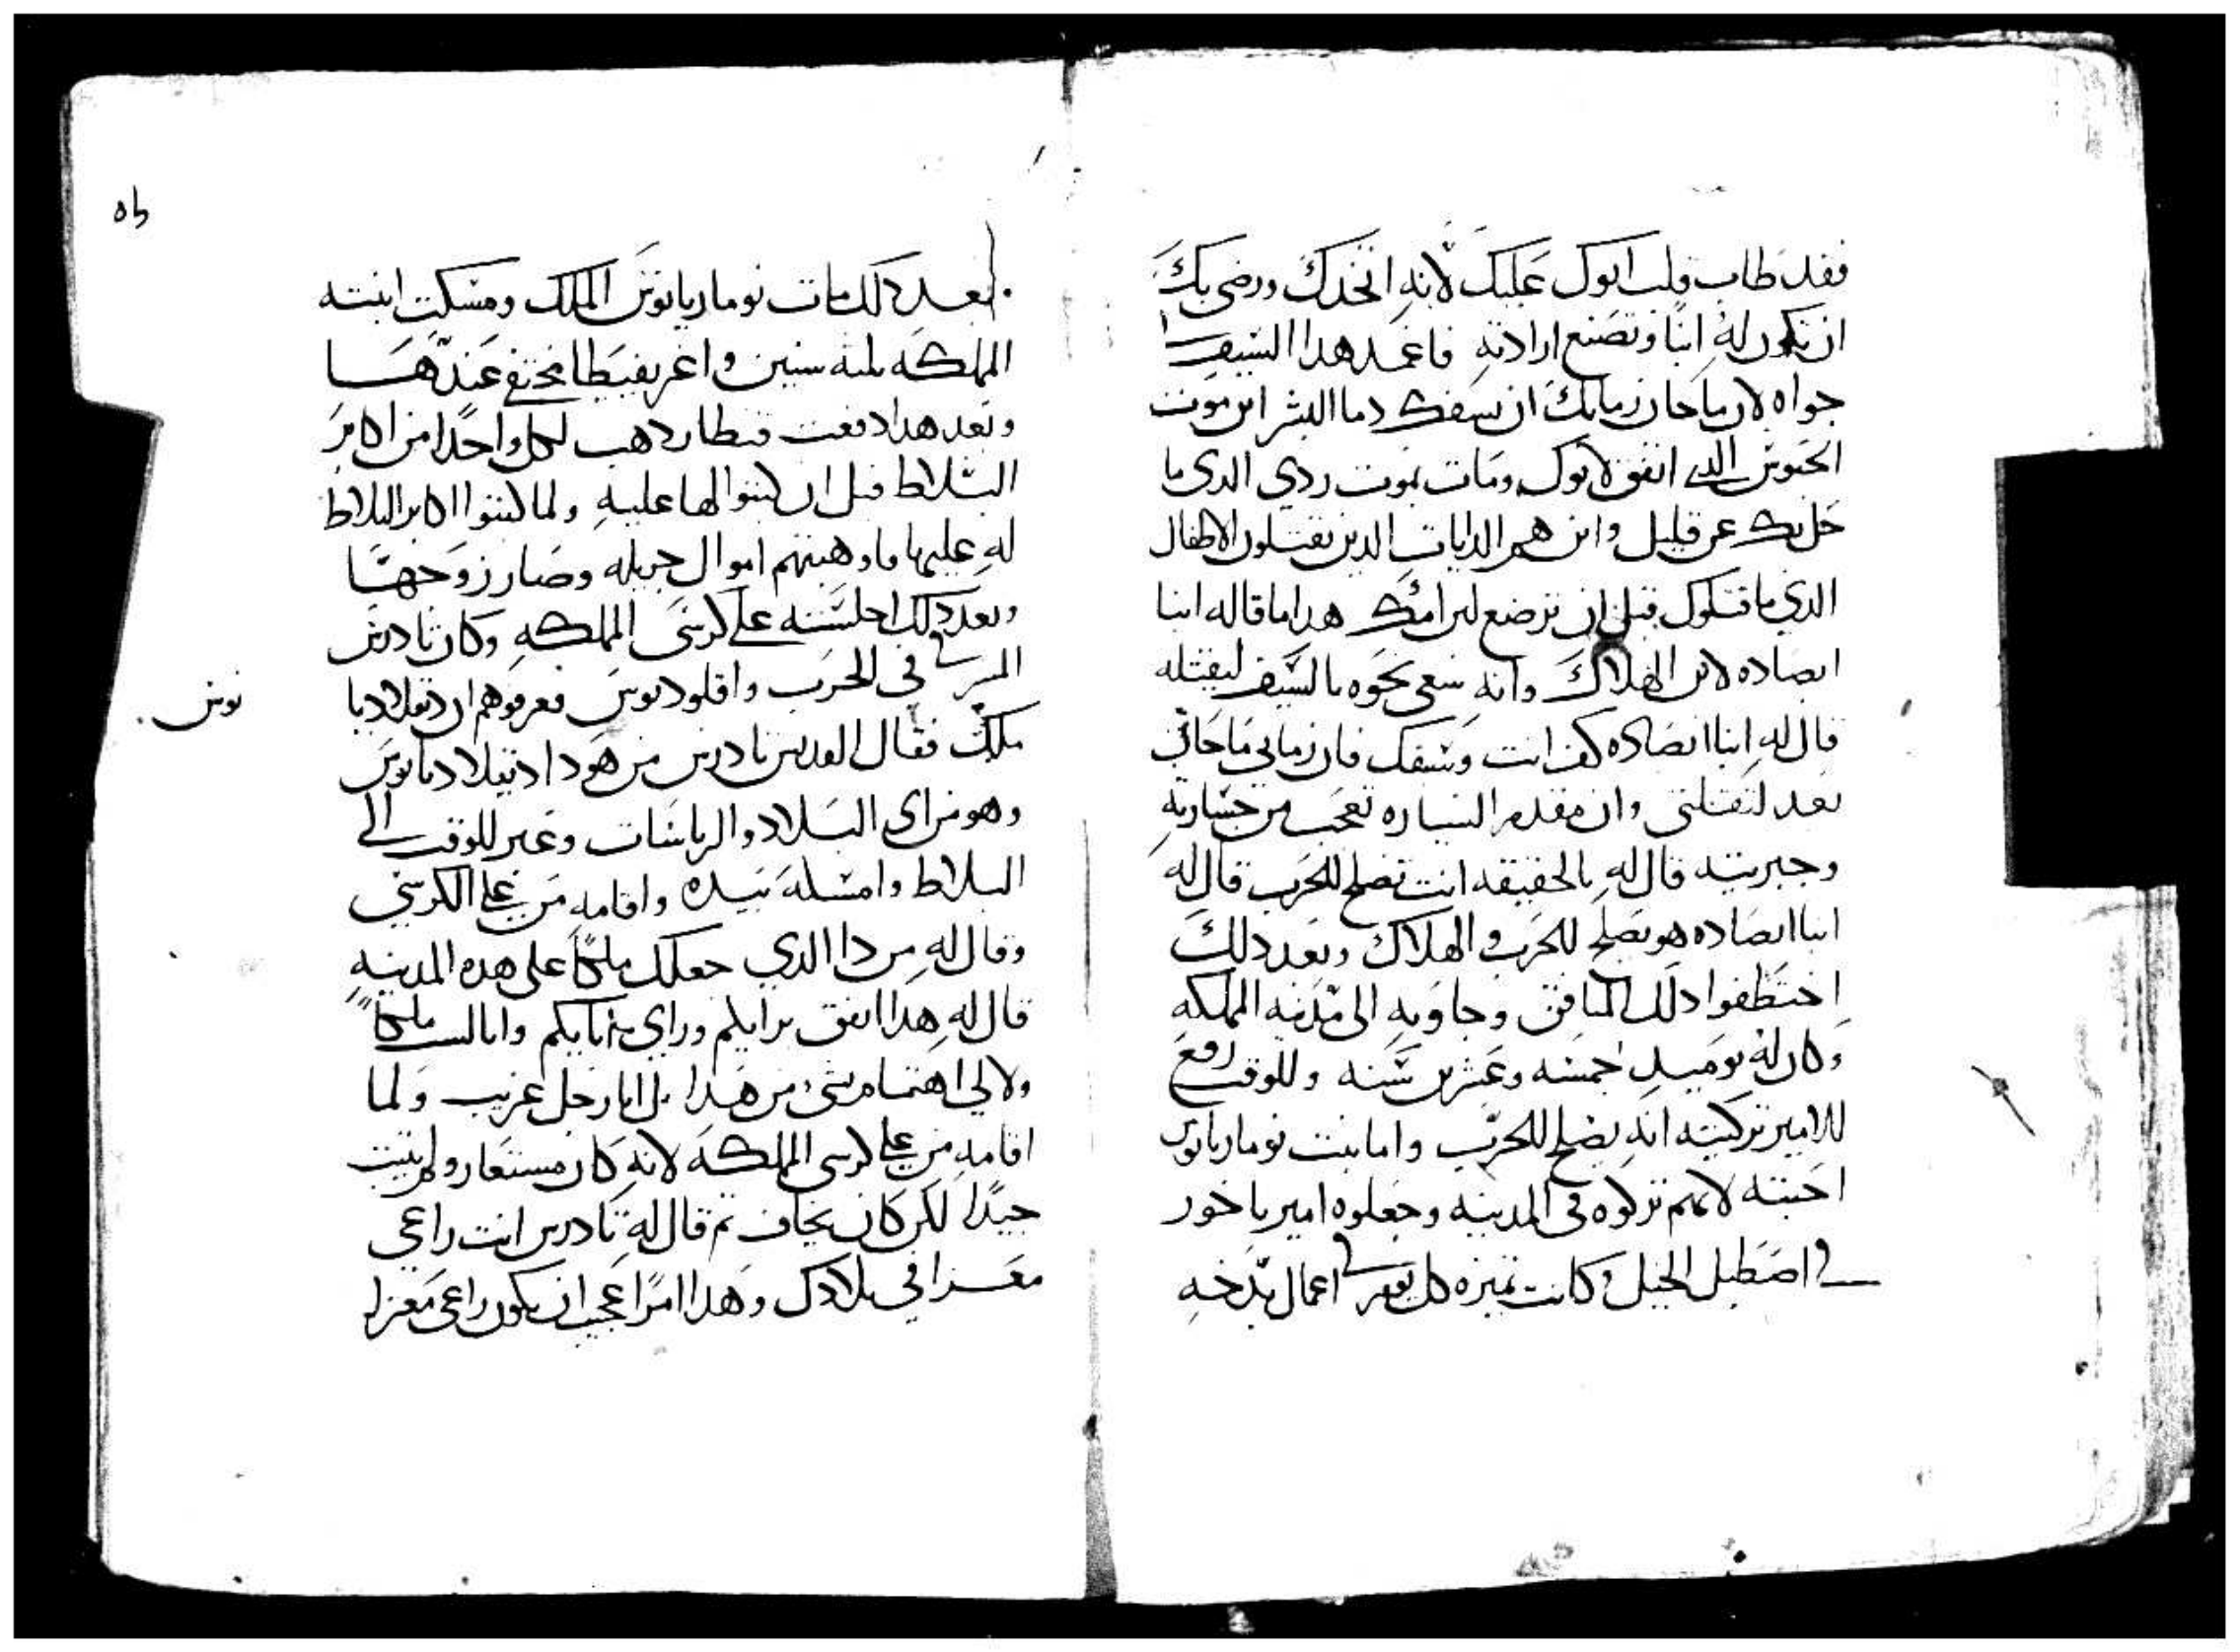 فقد طاب قلب ابوك عليك لانه اتخدك ورضي بك
ان تكون له ابنا وتصنع ارادته فاغمد هدا السيف
جواه لان ما حان زمانك ان تسفك دما البشر اين موت
الحيوش الدي اتفق لابوك ومات بموت ردي الدي ما
حل بك عن قليل واين هم الدايات الدين يقتلون الاطفال
الدي ما قتلوك قبل ان ترضع لبن امك هدا ما قاله ابنا
ابصاده لابن الهلاك وانه سعى نحوه بالسيف ليقتله
قال له ابنا ابصاده كف انت وسيفك فان زماني ما حان
بعد لتقتلني وان مقدم السياره تعجب من جسارته
وجبريته قال له بالحقيقه انت تصلح للحرب قال له
ابنا ابصاده هو يصلح للحرب والهلاك وبعد دلك
اختطفوا دلك المنافق وجاو به الى مدينه المملكه
وكان له يوميد خمسه وعشرين سنه وللوقت رفع
للامير تركيته انه يصلح للحرب واما بنت نوماريانوس
احبته لانهم تركوه في المدينه وجعلوه امير ياخور
في اصطبل الخيل وكانت تميزه كل يوم اعمال بدخه
بعد دلك مات نوماريانوس الملك ومسكت ابنته
المملكه تلته سنين واغريفيطا مختفي عندها
وبعد هدا دفعت قنطار دهب لكل واحدا من اكابر
البلاط قبل ان كتبوا لها عليه ولما كتبوا اكابر البلاط
له عليها ما وهبتهم اموال جزيله وصار زوجها
وبعد دلك اجلسته على كرسي المملكه وكان تادرس
في الحرب واقلوديوس فعرفوهم ان دقلاديا
نوس
ملك فقال القديس تادرس من هو دا دقلاديانوس
وهو من اي البلاد والرياسات وعبر للوقت الى
البلاط وامسكه بيده واقامه من على الكرسي
وقال له من دا الدي جعلك ملكا على هده المدينه
قال له هدا اتفق برايكم وراي وانا لست ملكا
ولا لي اهتمام بشي من هدا بل انا رجل غريب ولما
اقامه من على كرسي المملكه لانه كان مستعار ولم يتبت
جيدا لكن كان يخاف تم قال له تادرس انت راعي
معزا في بلادك وهدا امرا عجيب ان يكون راعي معزا